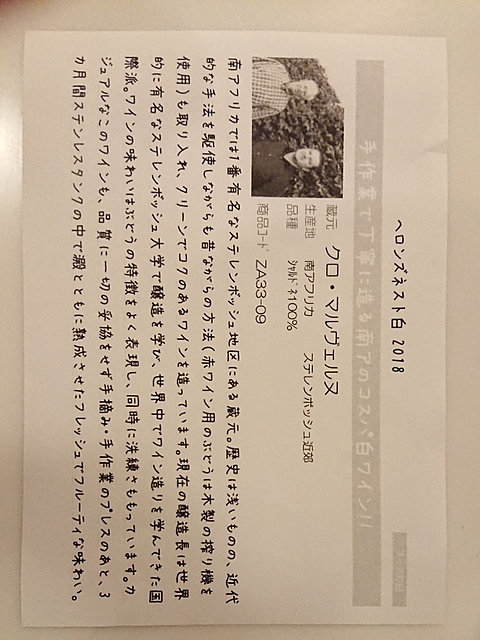 ヘロンズネスト白 2018
手作業で丁寧に造る南アのコスパ白ワイン!!
蔵元 クロ・マルヴェルヌ
生産地 南アフリカ ステレンボッシュ近郊
品種 シャルドネ100%
商品コード ZA33-09
南アフリカでは1番有名なステレンボッシュ地区にある蔵元。歴史は浅いものの、近代
的な手法を駆使しながらも昔ながらの方法(赤ワイン用のぶどうは木製の搾り機を
使用)も取り入れ、クリーンでコクのあるワインを造っています。現在の醸造長は世界
的に有名なステレンボッシュ大学で醸造を学び、世界中でワイン造りを学んできた国
際派。ワインの味わいはぶどうの特徴をよく表現し、同時に洗練さももっています。カ
ジュアルなこのワインも、品質に一切の妥協をせず手摘み・手作業のプレスのあと、3
カ月間ステンレスタンクの中で澱とともに熟成させたフレッシュでフルーティな味わい。